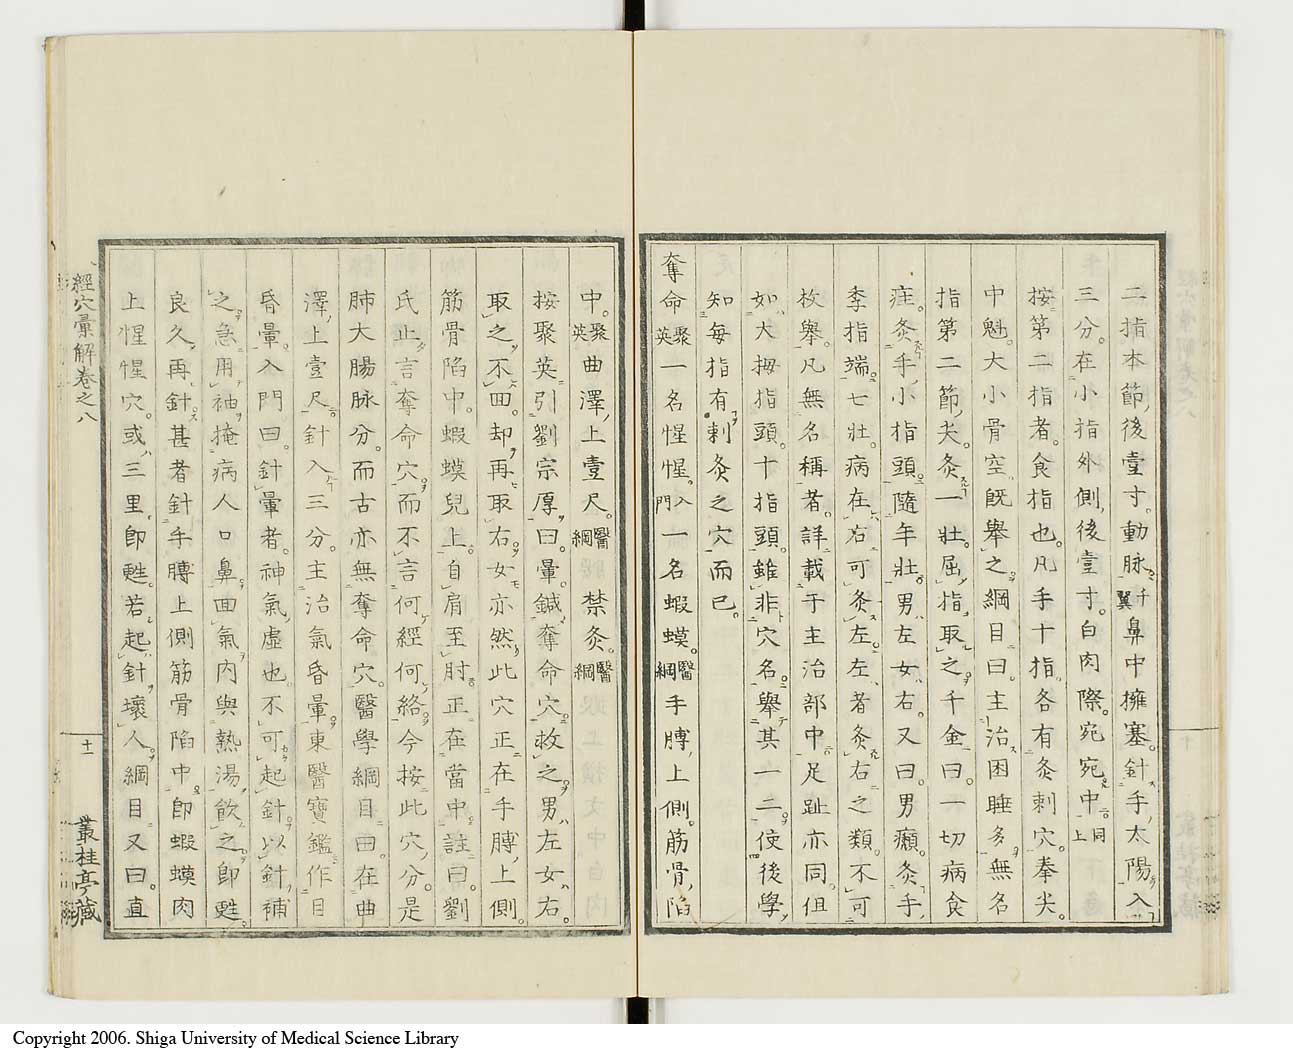 二指本節後壹寸動脉千翼鼻中擁塞針手太陽入
三分在小指外側後壹寸白肉際宛宛中同上
按第二指者食指也凡手十指各有灸刺穴拳尖
中魁大小骨空既舉之綱目曰主治困睡多無名
指第二節尖灸一壯屈指取之千金曰一切病食
疰灸手小指頭隨年壯男左女右又曰男癩灸手
季指端七壯病在右可灸左左者灸右之類不可
枚舉凡無名稱者詳載于主治部中足趾亦同但
如大拇指頭十指頭雖非穴名舉其一二使後學
知每指有刺灸之穴而已
奪命聚英一名惺惺入門一名蝦蟆醫綱手膊上側筋骨陷
中聚英曲澤上壹尺醫綱禁灸醫綱
按聚英引劉宗厚曰暈鍼奪命穴救之男左女右
取之不回却再取右女亦然此穴正在手膊上側
筋骨陷中蝦蟆兒上自肩至肘正在當中註曰劉
氏止言奪命穴而不言何經何絡今按此穴分是
肺大腸脉分而古亦無奪命穴醫學綱目曰在曲
澤上壹尺針入三分主治氣昏暈東醫寶鑑作目
昏暈入門曰針暈者神氣虛也不可起針以針補
之急用袖掩病人口鼻回氣內與熱湯飲之即甦
良久再針甚者針手膊上側筋骨陷中即蝦蟆肉
上惺惺穴或三里即甦若起針壞人綱目又曰直
經穴彙解卷之八
十一
叢桂亭藏
Copyright 2006. Shiga University of Medical Science Library